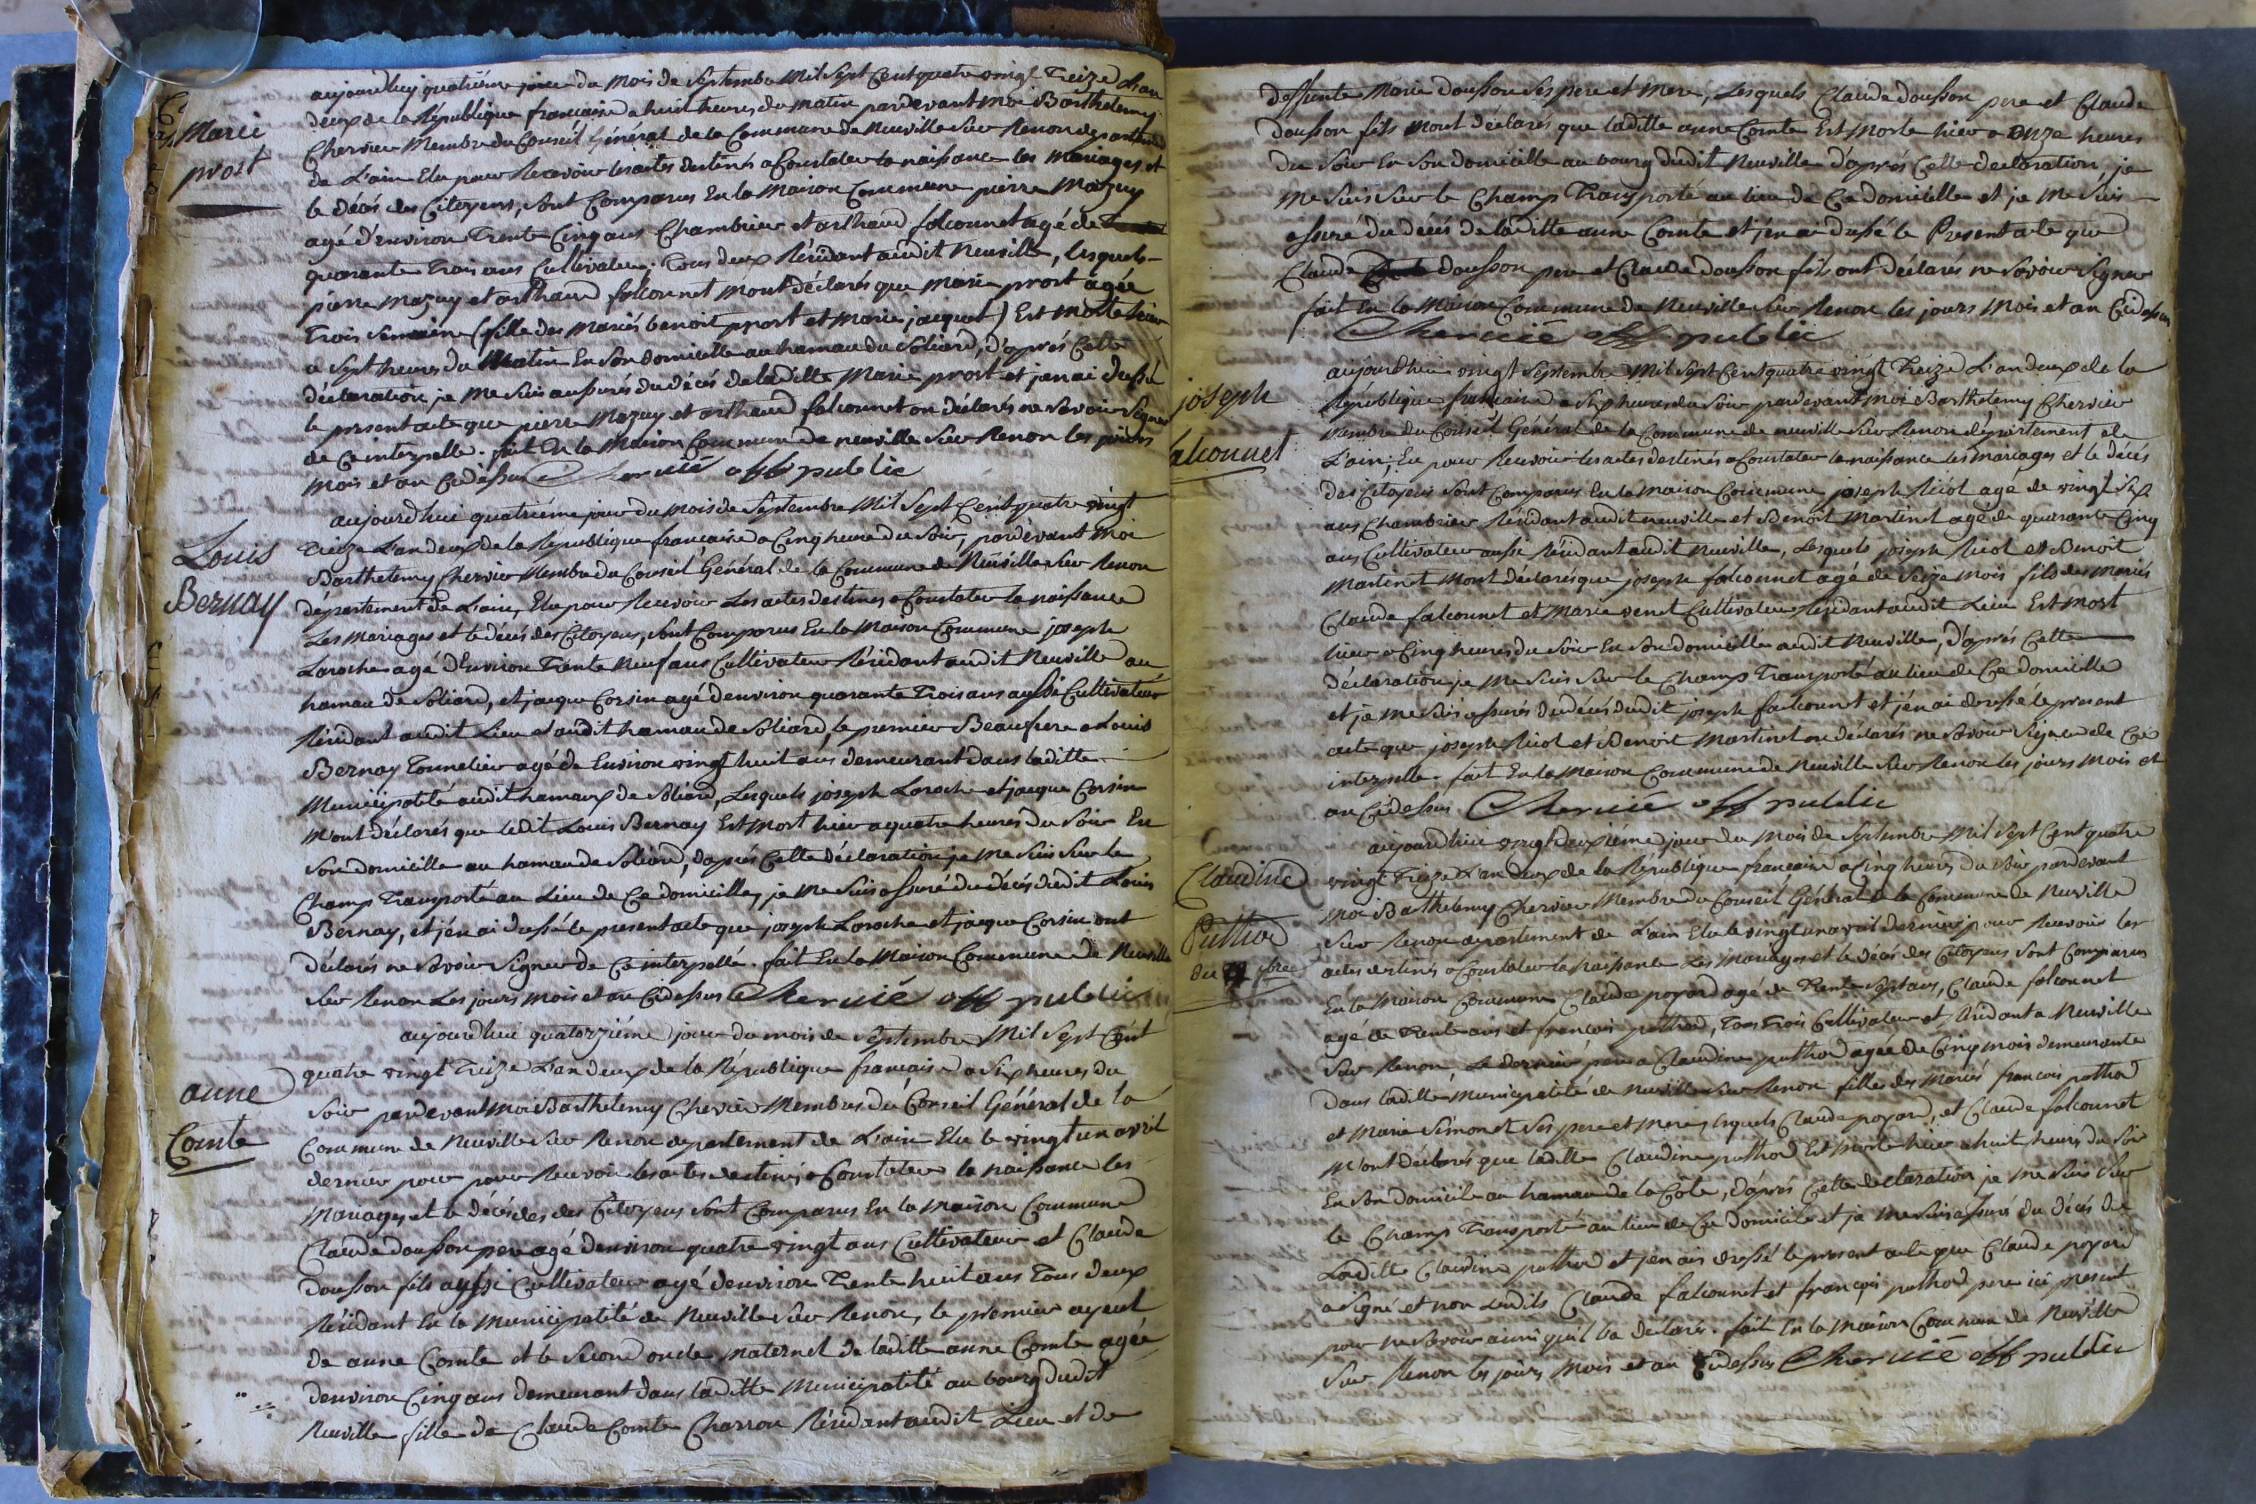 Marie
prost
aujourdhuy quatriéme jour du mois de septembre Mil Sept Cent quatre vingt Treize L'an
deux de la République francaise a huit heures du matin pardevant moi Barthelemy
Chervier Membre du Conseil Général de la Commune de Neuville sur Renon departement
de L'ain Elu pour Recevoir les actes destinés a Constater la naissance les mariages et
le décés des Citoyens, sont Comparus En la Maison Commune pierre Mazuy
agé d'environ Trente Cinq ans Chambrier et arthaud falconnet agé de
quarante Trois ans Cultivateur, Tous deux Résidant audit Neuville, lesquels
pierre Mazuy et arthaud falconnet mont déclarés que marie prost agée
Trois Semaine (fille des mariés benoit prost et Marie jacquet) Est morte hier
a Sept heures du Matin En Son domicille au hamau du Soliard, d'aprés Cette
déclaration je me suis assurés du décés de laditte Marie prost et jen ai dressé
le present acte que pierre Mazuy et arthaud falconnet on déclarés ne Savoir Signer
de Ce interpellé. fait En la Maison Commune de neuville Sur Renon les jours
mois et an Cidessus Chervié off public
Louis
Bernay
aujourdhui quatriéme jour du mois de Septembre Mil Sept Cent quatre vingt
Treize L'an deux de la République francaise a Cinq heure du Soir, pardevant Moi
Barthelemy Chervier Membre du Conseil Général de la Commune de Neuville Sur Renon
département de L'ain, Elu pour Recevoir Les actes destines a Constater la naissance
Les mariages et le décés des Citoyens, sont Comparus En la Maison Commune joseph
Laroche agé d'Environ Trente Neuf ans Cultivateur Résidant audit Neuville au
hamau de Soliard, et jacque Corsin agé denviron quarante Trois ans aussi Cultivateur
Résidant audit Lieu et audit hamau de Soliard, le premier Beaufrere a Louis
Bernay Tonnelier agé de Environ vingt huit ans demeurant dans laditte
Municipalité audit hamaux de Soliard, Lesquels joseph Laroche et jacque Corsin
m'ont déclarés que ledit Louis Bernay Est mort hier a quatre heures du Soir En
Son domicille au hamau de Soliard, daprés Cette déclaration, je me suis Sur le
Champ Transporté au Lieu de Ce domicille, je me suis assuré du décés dudit Louis
Bernay, et jén ai dressé le present acte que joseph Laroche et jacque Corsin ont
déclarés ne Savoir Signer de Ce interpellé. fait En la Maison Commune de Neuville
Sur Renon Les jours mois et an Cidessus Chervié off public
anne
Comte
aujourdhui quatorziéme jour du mois de Septembre Mil Sept Cent
quatre vingt Treize L'an deux de la République francaise a Six heures du
Soir pardevant moi Barthelemy Chervier Membres du Conseil Général de la
Commune de Neuville Sur Renon departement de L'ain Elu le vingt un avril
dernier pour pour Recevoir les actes destinés a Constater la naissance les
Mariages et le décés des des Citoyens Sont Comparus En la Maison Commune
Claude dousson pere agé denviron quatre vingt ans Cultivateur et Claude
dousson fils aussi Cultivateur agé d'environ Trente huit ans Tous deux
Résidant En la Municipalité de Neuville Sur Renon, le premier ayeul
de anne Comte et le Second oncle Maternel de laditte anne Comte agée
denviron Cinq ans demeurant dans laditte Municipalité au bourg dudit
Neuville fille de Claude Comte Charron Résidant audit Lieu et de
deffunte Marie dousson Ses pere et Mere, Lesquels Claude dousson pere et Claude
dousson fils mont déclarés que laditte anne Comte Est Morte hier a onze heures
du Soir En Son domicille au bourg dudit Neuville d'aprés Cette declaration, je
me suis Sur le Champ Transporté au lieu de Ce domicille et je me Suis
assuré du décés de laditte anne Comte et jén ai dressé le Present acte que
Claude dousson pere et Claude dousson fils ont déclarés ne Savoir Signer
fait En la Maison Commune de Neuville Sur Renon les jours Mois et an Cidessus
Chervié off public
joseph
falconnet
aujourdhui vingt Septembre Mil Sept Cent quatre vingt Treize L'an deux de la
République francaise a Six heures du Soir pardevant moi Barthélemy Chervier
Membre du Conseil Général de la Commune de neuville Sur Renon département de
L'ain, Elu pour Recevoir les actes destinés a Constater la naissance les mariages et le décés
des Citoyens Sont Comparus En la Maison Commune joseph Ricol agé de vingt Six
ans Chambrier Résidant audit neuville et Benoit Martinet agé de quarante Cinq
ans Cultivateur aussi Résidant audit Neuville, Lesquels joseph Ricol et Benoit
Martinet Mont déclarés que joseph falconnet agé de Seize mois fils des mariés
Claude falconnet et Marie venet Cultivateur Résidant audit Lieu Est Mort
hier a Cinq heures du Soir En Son domicille audit Neuville, d'aprés Cette
déclaration je me suis Sur le Champ Transporté au lieu de Ce domicille
et je me suis assurés du décés dudit joseph falconnet et jén ai dressé le present
acte que joseph Ricol et Benoit Martinet on déclarés ne Savoir Signer de Ce
interpellé. fait En la Maison Commune de Neuville Sur Renon les jours Mois et
an Cidessus Chervié off public
Claudine
Puthod
du
aujourdhui vingt deuxiéme jour du Mois de Septembre Mil Sept Cent quatre
vingt Treize L'an deux de la République francaise a Cinq heures du Soir pardevant
Moi Barthelemy Chervier Membre du Conseil Général de la Commune de Neuville
Sur Renon departement de L'ain Elu le vingt un avril dernier pour Recevoir les
actes destinés a Constater la Naissance Les Mariages et le décés des Citoyens Sont Comparus
En la Maison Commune Claude poyard agé de Trente Sept ans, Claude falconnet
agé de Trente ans et francois puthod, Tous Trois Cultivateur et Résidant a Neuville
Sur Renon Le dernier pere a Claudine puthod agée de Cinq mois demeurante
dans laditte Municipalité de Neuville Sur Renon fille des Mariés francois puthod
et Marie Simonet Ses pere et Mere, Lesquels Claude poyard, et Claude falconnet
M'ont déclarés que laditte Claudine puthod Est Morte hier a huit heures du Soir
En Son domicile au hamau de la Côte, d'aprés Cette déclaration je me suis Sur
le Champ Transporté au lieu de Ce domicile et je me suis assuré du décés de
Laditte Claudine puthod et jen ais dressé le present acte que Claude poyard
a Signé et non Lesdits Claude falconnet et françois puthod pere ici present
pour ne Savoir ainsi qu'il la déclarés. fait En la Maison Commune de Neuville
Sur Renon les jours Mois et an Cidessus Chervié off public